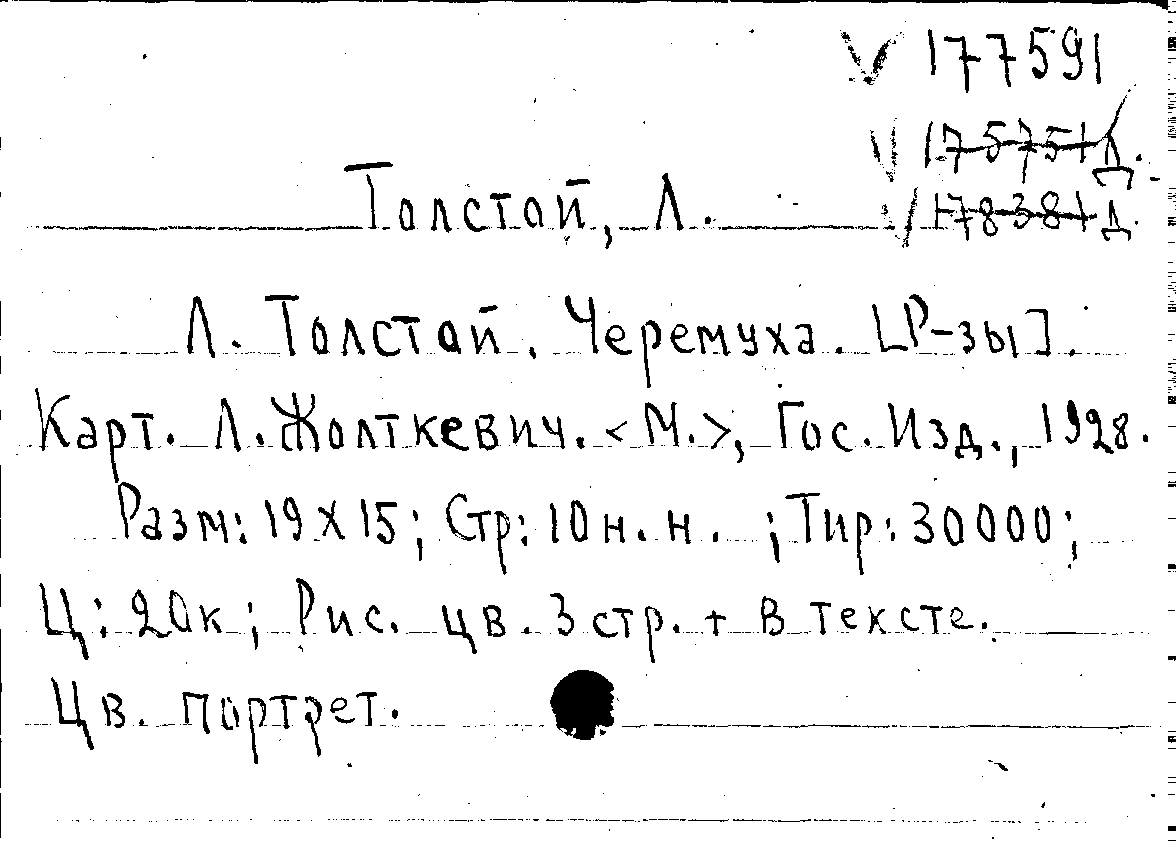 V 177591
V 175751 Д.
V 178381 Д.
Толстой, Л.
Л. Толстой. Черемуха. [Р-зы].
Карт. Л. Жолткевич. <М.>, Гос. Изд., 1928.
Разм: 19 х 15; Стр: 10 н. н. ; Тир: 30000;
Ц: 20к; Рис. цв. 3 стр. + в тексте.
Цв. портрет.